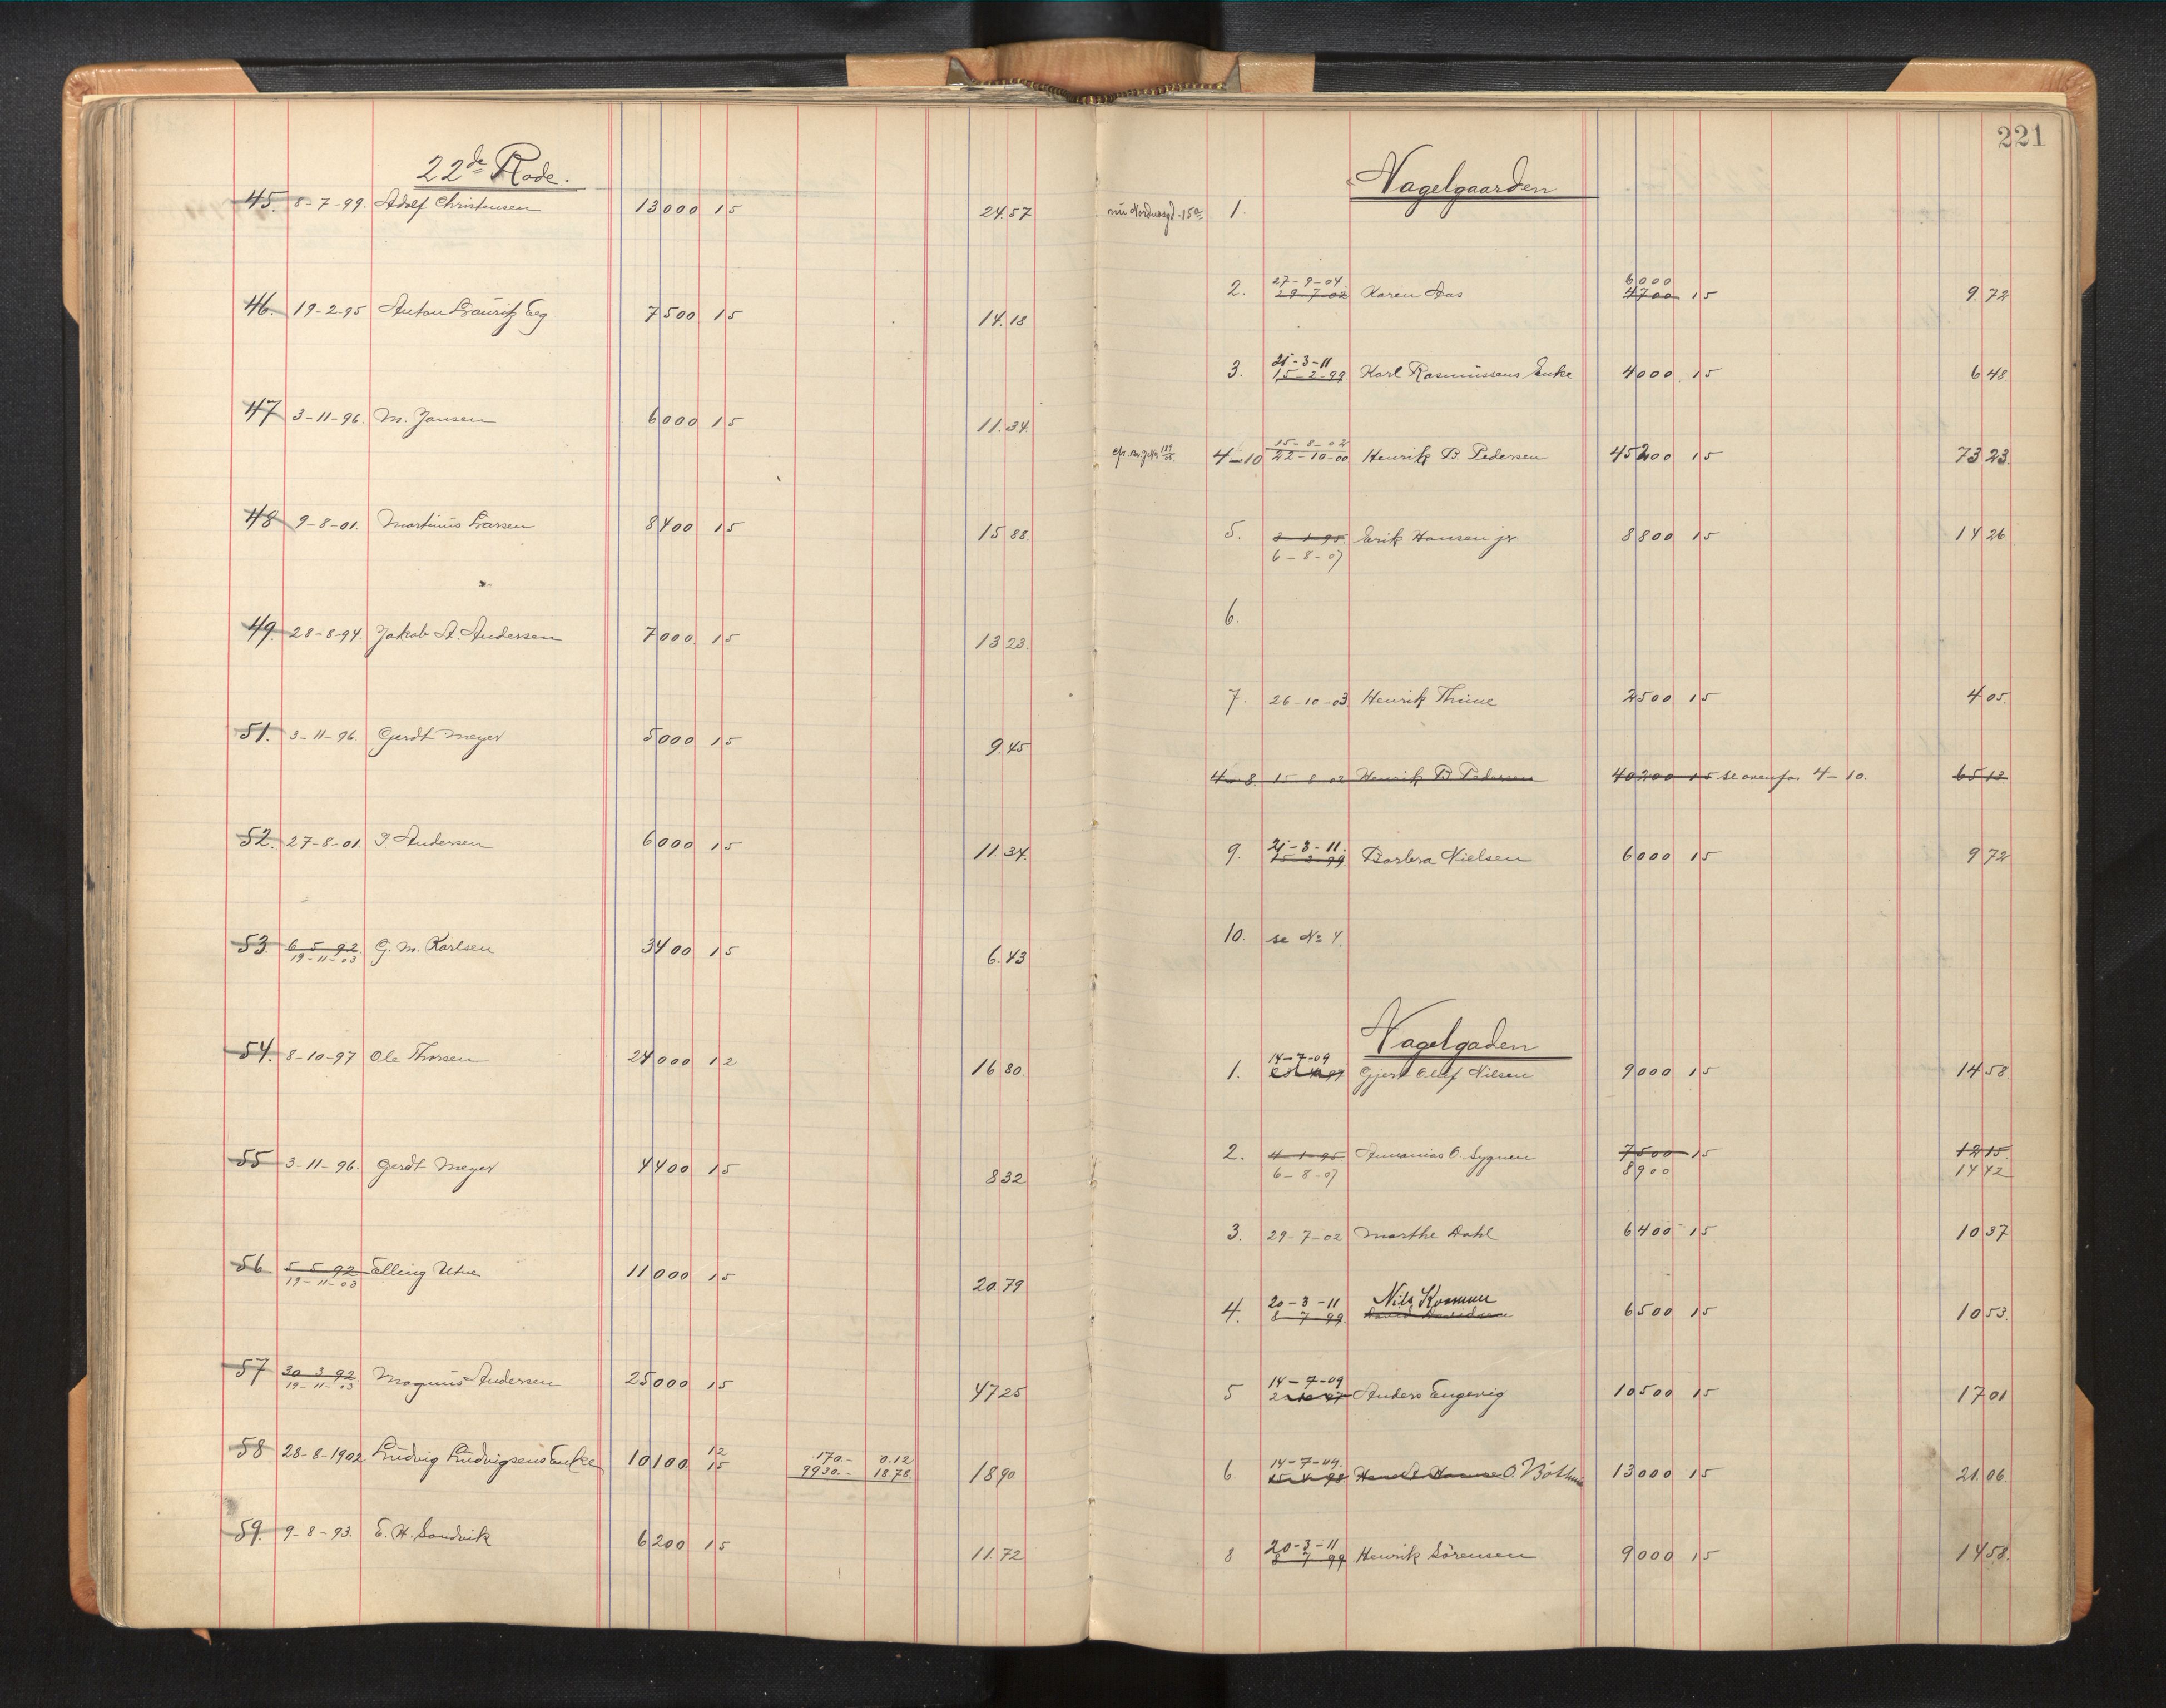 22de Rode.
45. 8-7-99. Adolf Christensen 13000 15 24.57
46. 19-2-95 Anton Lauritz Eeg 7500 15 14.18
47 3-11-96. M. Jansen 6000 15 11.34
48 9-8-01. Martinus Larsen 8400 15 15 88.
49. 28-8-94. Jakob A. Andersen 7000 15 13 23.
51. 3-11-96. Gerdt Meyer 5000 15 9.45
52. 27-8-01. J. Andersen 6000 15 11.34.
53. 6 5 92. G. M. Karlsen 3400 15 6.43
19-11-03
54. 8-10-97 Ole Thorsen 24000 12 16 80
55 3-11-96. Gerdt Meyer 4400 15 8 32
56 5 5 92 Elling Utne 11000 15 20.79
19-11-03
57 30 3 92 Magnus Andersen 25000 15 47 25
19-11-03
58 28-8-1902 Ludvig Ludvigsens Enke 10100 12 170.- 0.12
15 9930.- 18.78. 18 90
59. 9-8-93. E. H. Sandvik 6200 15 11.72
221
Nagelgaarden
nu 15a 1.
27-9-04. 6000
2. 29-7-02 Karen Aas 4700 15 9.72
21-3-11
3. 15-2-99 Karl Rasmussens Enke 4000 15 6 48
15-8-02
4-10 22-10-00 Henrik B. Pedersen 45200 15 73 23.
5. 3-1-95 Erik Hansen jr 8800 15 14 26
6-8-07
6.
7. 26-10-03 Henrik Thime 2500 15 4 05.
4-8. 15-8-02 Henrik B Pedersen 40200 15 se ovenfor 4-10. 65 13
21-3-11.
9. 15-2-99 Barbra Nielsen 6000 15 9 72
10. se No 4.
Nagelgaden
14-7-09
1. Gjert Oluf Nilsen 9000 15 14 58
2. 4-1-95 Annanias O. Sygnen 7500 15 12 15.
6-8-07 8900 14 42
3. 29-7-02 Marthe Dahl 6400 15 10 37
20-3-11 Nils
4. 8 7 99. 6500 15 10 53.
14-7-09
5 Anders Engevig 10500 15 17 01
14-7-09.
6. O. 13000 15 21.06
20-3-11
8 8 7 99 Henrik Sörensen 9000 15 14 58.